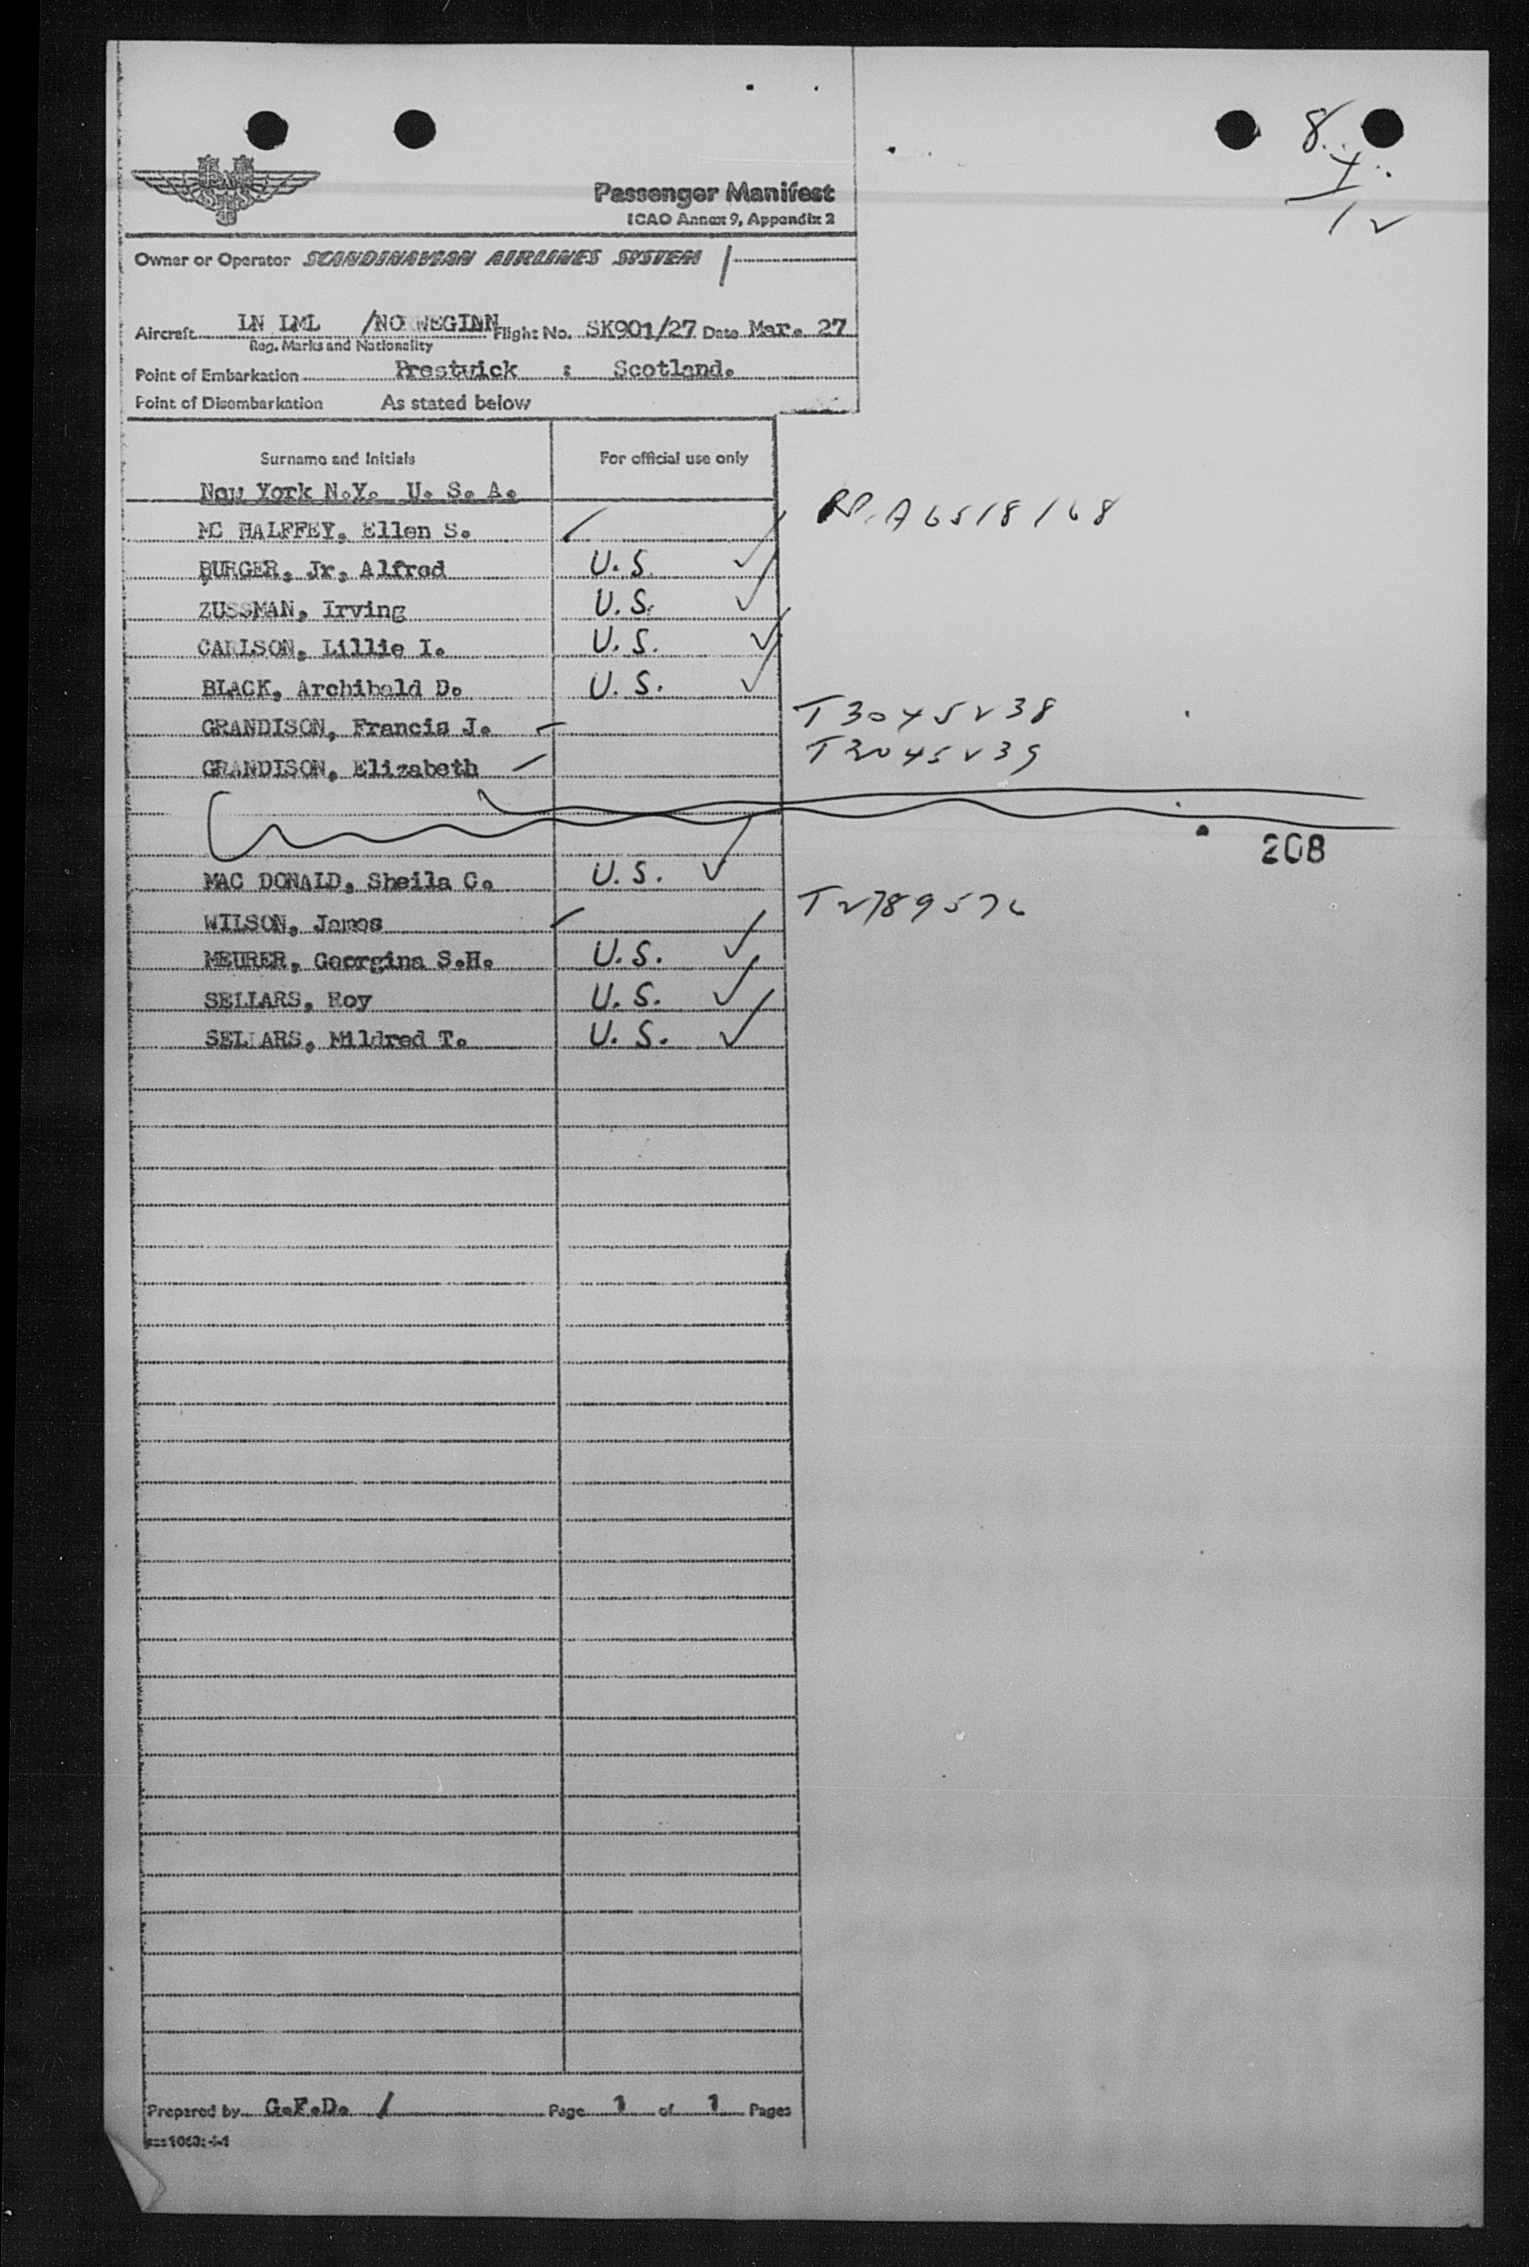 8
4
12
SAS
Passenger Manifest
ICAO Annex 9, Appendix 2
Owner or Operator SCANDINAVIAN AIRLINES SYSTEM /
Aircraft LN LML /NORWEGINN Flight No. SK901/27 Date Mar. 27
Reg. Marks and Nationality
Point of Embarkation Prestwick : Scotland.
Point of Disembarkation As stated below
Surname and Initials For official use only
New York N.Y. U. S. A.
MC HALFFEY, Ellen S. A6518168
BURGER, Jr, Alfred U.S. ✓
ZUSSMAN, Irving U.S. ✓
CARLSON, Lillie I. U.S. ✓
BLACK, Archibald D. U.S. ✓
GRANDISON, Francis J. T3045238
GRANDISON, Elizabeth T3045239
208
MAC DONALD, Sheila C. U.S. ✓
WILSON, James T2789576
MEURER, Georgina S.H. U.S. ✓
SELLARS, Roy U.S. ✓
SELLARS, Mildred T. U.S. ✓
Prepared by G.F.D. / Page 1 of 1 Pages